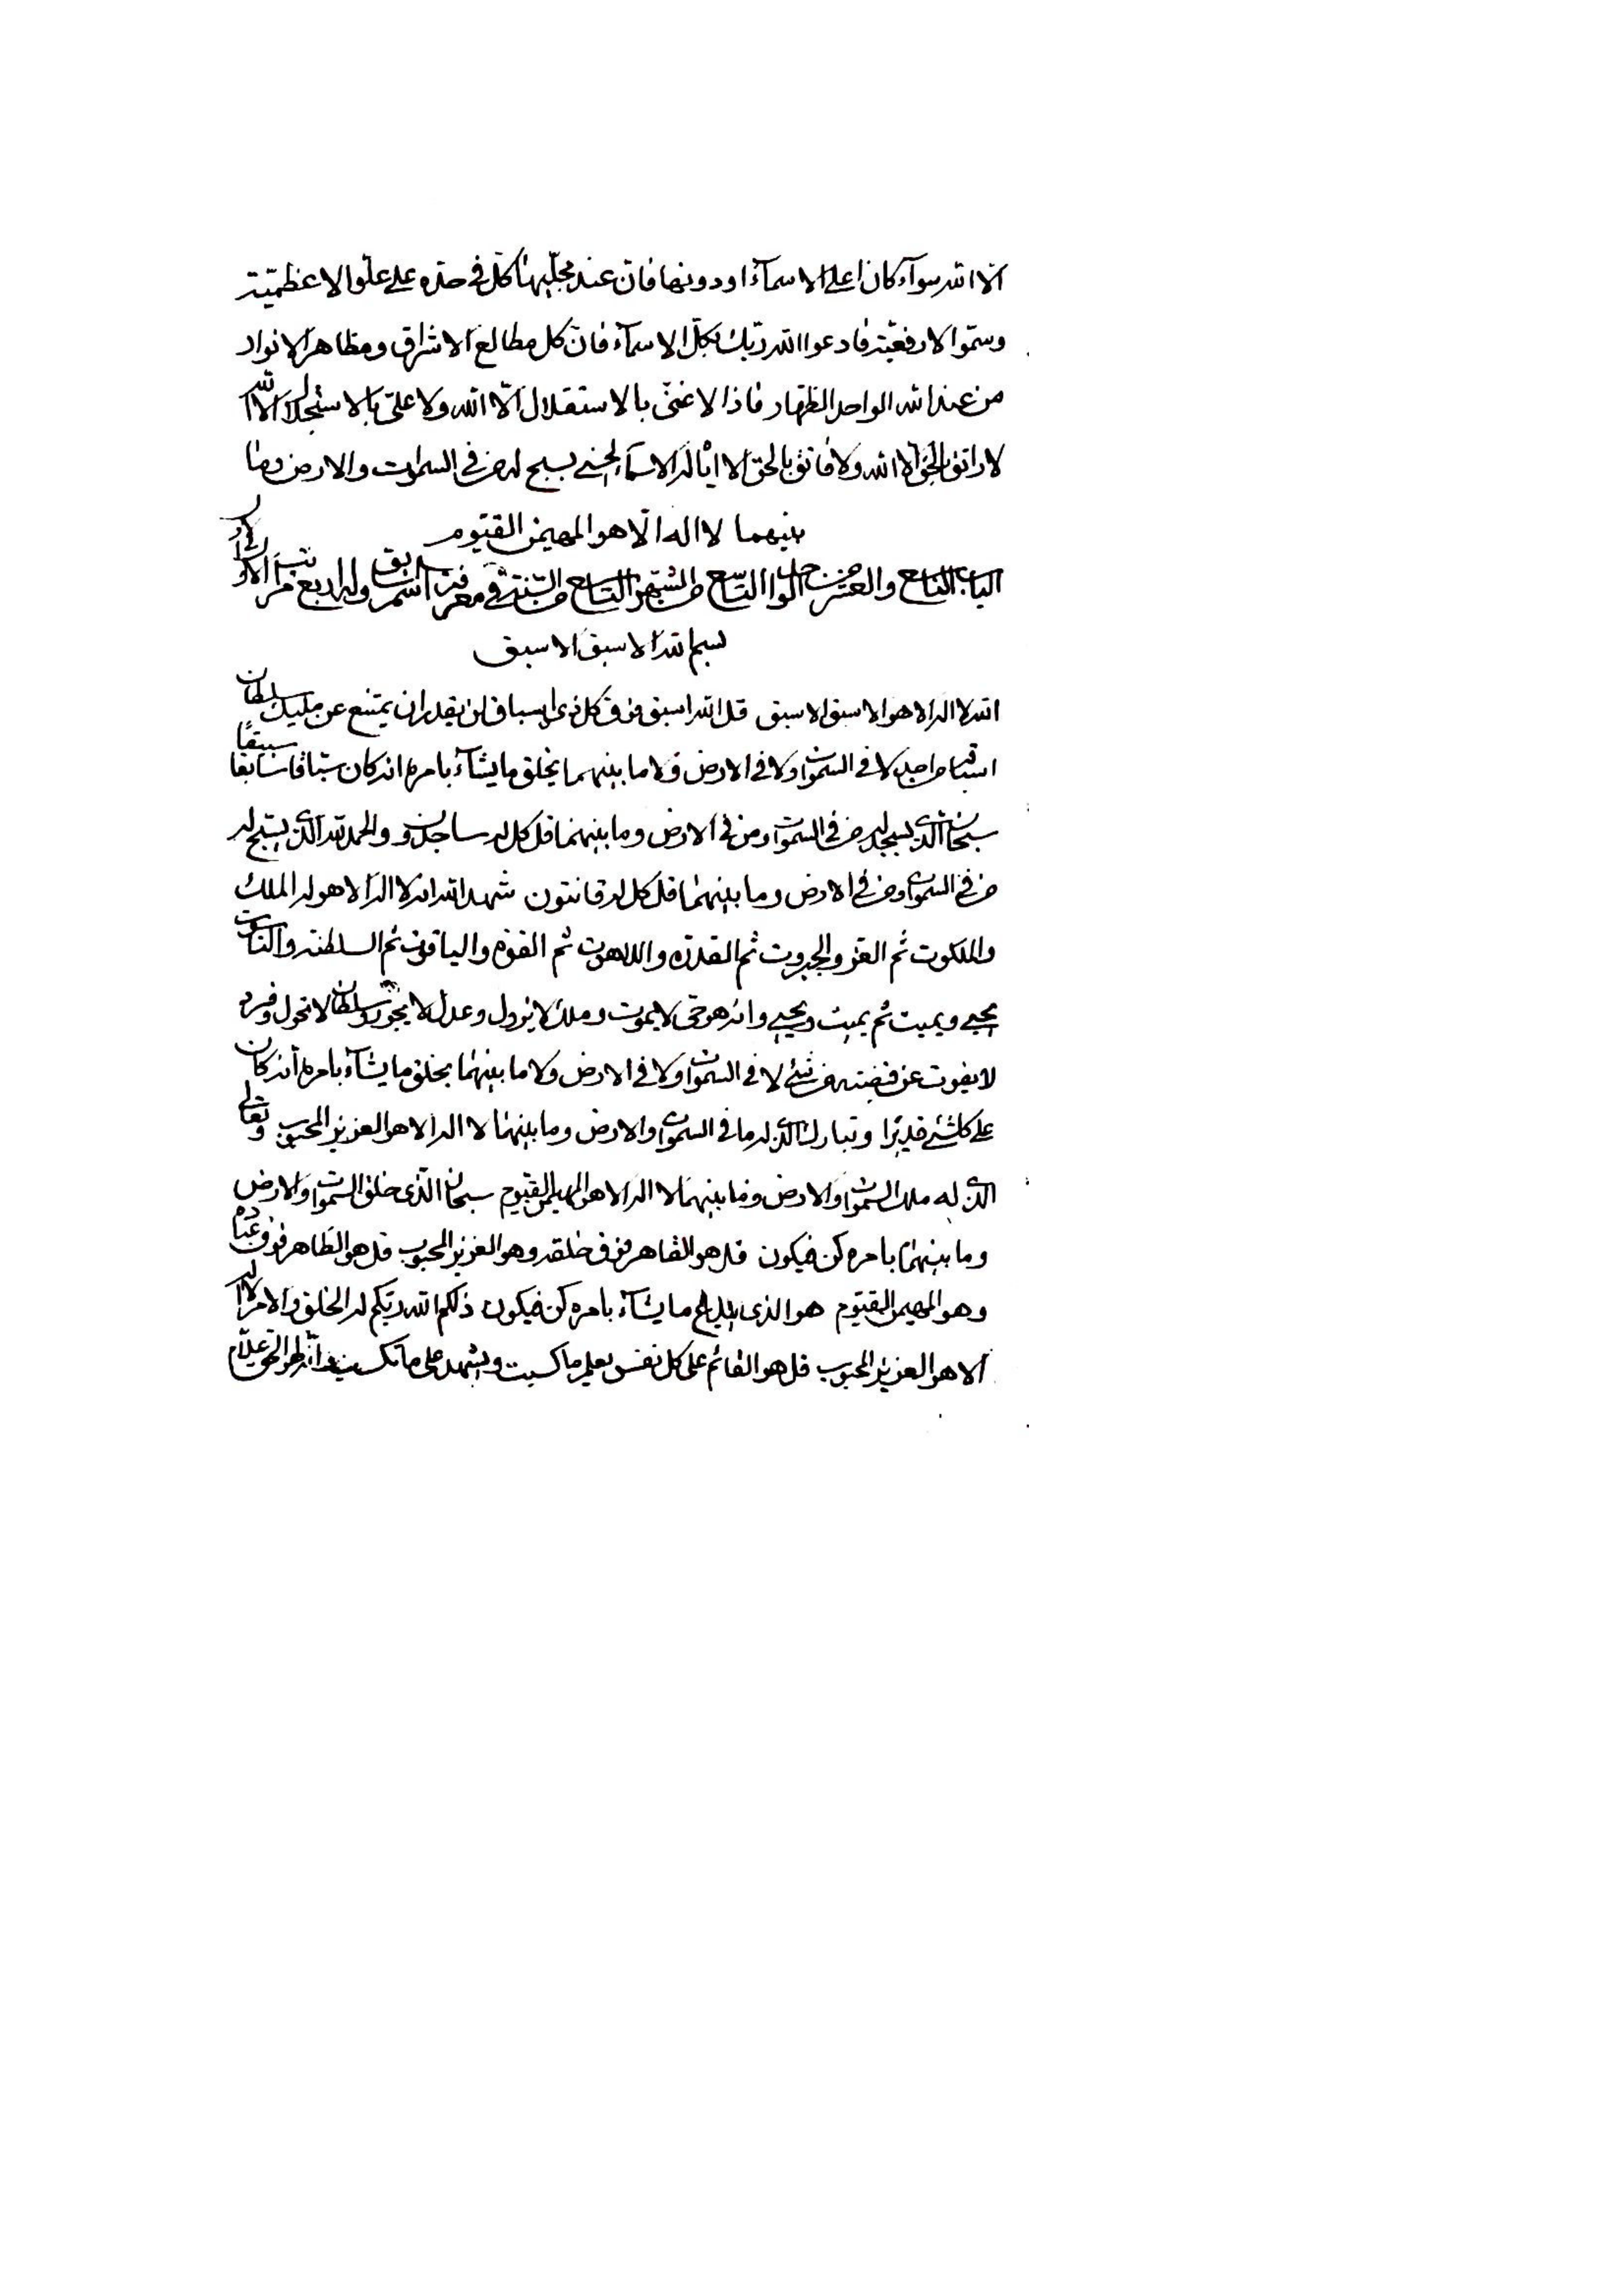 الا الله سوآء كان اعلى الاسمآء او دونها فان عند مجليها كل فى حده على علو الاعظمية
وسمو الارفعية فادعوا الله ربك بكل الاسمآء فان كل مطالع الاشراق ومظاهر الانوار
من عند الله الواحد الظهار فاذا لا غنى بالاستقلال الا الله ولا على بالاستجلال الا الله
لا راتق بالحق الا الله ولا فاتق بالحق الا اياه له الاسمآء الحسنى يسبح له من فى السموات والارض وما
بينهما لا اله الا هو المهيمن القيوم
الباب التاسع والعشر من الواحد التاسع من الشهر التاسع من السنة فى معرفة اسم السابق وله اربع مراتب الاول فى الاول
بسم الله الاسبق الاسبق
الله لا اله الا هو الاسبق الاسبق قل الله اسبق فوق كل ذى اسباق لن يقدر ان يمتنع عن مليك سلطان
اسباقه من احد لا فى السموات ولا فى الارض ولا ما بينهما يخلق ما يشآء بامره انه كان سباقا سابقا سبيقا
سبحان الذى يسجد له من فى السموات ومن فى الارض وما بينهما قل كل له ساجدون والحمد لله الذى يسبح له
من فى السموات ومن فى الارض وما بينهما قل كل له قانتون شهد الله انه لا اله الا هو له الملك
والملكوت ثم العز والجبروت ثم القدرة واللاهوت ثم القوة والياقوت ثم السلطنة والناسوت
يحيى ويميت ثم يميت ويحيى وانه هو حى لا يموت وملك لا يزول وعدل لا يجور وسلطان لا يحول وفرد
لا يفوت عن قبضته من شئ لا فى السموات ولا فى الارض ولا ما بينهما يخلق ما يشآء بامره انه كان
على كلشئ قديرا وتبارك الذى له ما فى السموات والارض وما بينهما لا اله الا هو العزيز المحبوب وتعالى
الذى له ملك السموات والارض وما بينهما لا اله الا هو المهيمن القيوم سبحان الذى خلق السموات والارض
وما بينهما بامره كن فيكون قل هو القاهر فوق خلقه وهو العزيز المحبوب قل هو الظاهر فوق عباده
وهو المهيمن القيوم هو الذى يبدع ما يشآء بامره كن فيكون ذلكم الله ربكم له الخلق والامر لا اله
الا هو العزيز المحبوب قل هو القائم على كل نفس يعلم ما كسبت ويشهد على ما تكسبن وانه لهو الحق علام